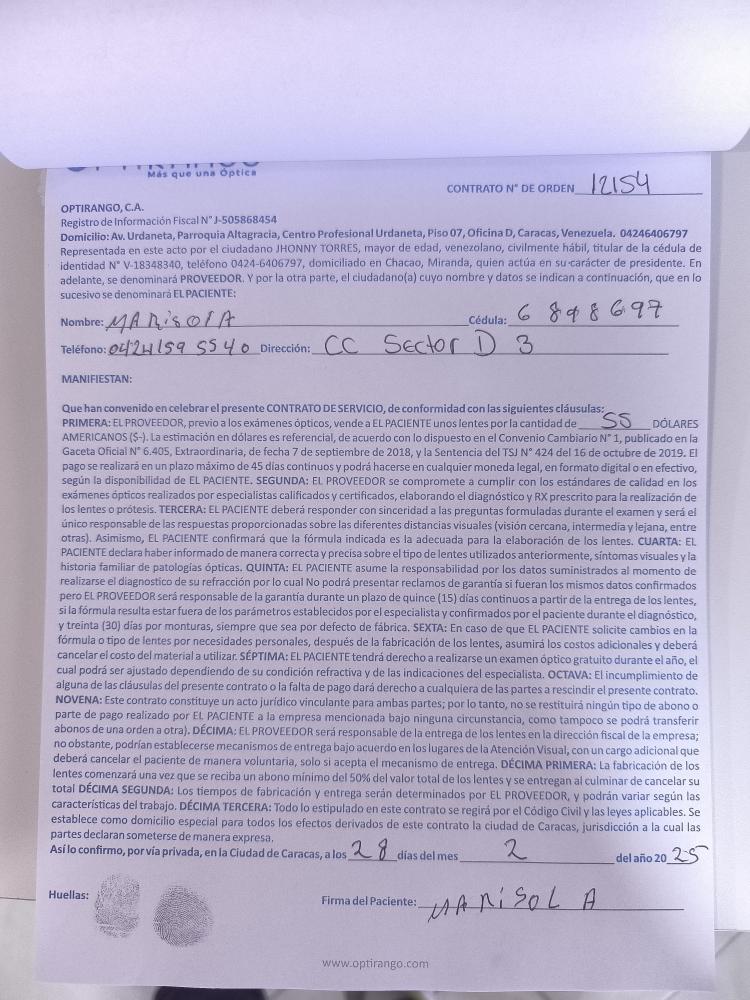 Más que una Óptica
CONTRATO N° DE ORDEN 12154
OPTIRANGO, C.A.
Registro de Información Fiscal N° J-505868454
Domicilio: Av. Urdaneta, Parroquia Altagracia, Centro Profesional Urdaneta, Piso 07, Oficina D, Caracas, Venezuela. 04246406797
Representada en este acto por el ciudadano JHONNY TORRES, mayor de edad, venezolano, civilmente hábil, titular de la cédula de
identidad N° V-18348340, teléfono 0424-6406797, domiciliado en Chacao, Miranda, quien actúa en su carácter de presidente. En
adelante, se denominará PROVEEDOR. Y por la otra parte, el ciudadano(a) cuyo nombre y datos se indican a continuación, que en lo
sucesivo se denominará EL PACIENTE:
Nombre: MARisol A Cédula: 6 898697
Teléfono: 0424159 5540 Dirección: CC Sector D 3
MANIFIESTAN:
Que han convenido en celebrar el presente CONTRATO DE SERVICIO, de conformidad con las siguientes cláusulas:
PRIMERA: EL PROVEEDOR, previo a los exámenes ópticos, vende a EL PACIENTE unos lentes por la cantidad de 55 DÓLARES
AMERICANOS ($-). La estimación en dólares es referencial, de acuerdo con lo dispuesto en el Convenio Cambiario N° 1, publicado en la
Gaceta Oficial N° 6.405, Extraordinaria, de fecha 7 de septiembre de 2018, y la Sentencia del TSJ N° 424 del 16 de octubre de 2019. El
pago se realizará en un plazo máximo de 45 días continuos y podrá hacerse en cualquier moneda legal, en formato digital o en efectivo,
según la disponibilidad de EL PACIENTE. SEGUNDA: EL PROVEEDOR se compromete a cumplir con los estándares de calidad en los
exámenes ópticos realizados por especialistas calificados y certificados, elaborando el diagnóstico y RX prescrito para la realización de
los lentes o prótesis. TERCERA: EL PACIENTE deberá responder con sinceridad a las preguntas formuladas durante el examen y será el
único responsable de las respuestas proporcionadas sobre las diferentes distancias visuales (visión cercana, intermedia y lejana, entre
otras). Asimismo, EL PACIENTE confirmará que la fórmula indicada es la adecuada para la elaboración de los lentes. CUARTA: EL
PACIENTE declara haber informado de manera correcta y precisa sobre el tipo de lentes utilizados anteriormente, síntomas visuales y la
historia familiar de patologías ópticas. QUINTA: EL PACIENTE asume la responsabilidad por los datos suministrados al momento de
realizarse el diagnostico de su refracción por lo cual No podrá presentar reclamos de garantía si fueran los mismos datos confirmados
pero EL PROVEEDOR será responsable de la garantía durante un plazo de quince (15) días continuos a partir de la entrega de los lentes,
si la fórmula resulta estar fuera de los parámetros establecidos por el especialista y confirmados por el paciente durante el diagnóstico,
y treinta (30) días por monturas, siempre que sea por defecto de fábrica. SEXTA: En caso de que EL PACIENTE solicite cambios en la
fórmula o tipo de lentes por necesidades personales, después de la fabricación de los lentes, asumirá los costos adicionales y deberá
cancelar el costo del material a utilizar. SÉPTIMA: EL PACIENTE tendrá derecho a realizarse un examen óptico gratuito durante el año, el
cual podrá ser ajustado dependiendo de su condición refractiva y de las indicaciones del especialista. OCTAVA: El incumplimiento de
alguna de las cláusulas del presente contrato o la falta de pago dará derecho a cualquiera de las partes a rescindir el presente contrato.
NOVENA: Este contrato constituye un acto jurídico vinculante para ambas partes; por lo tanto, no se restituirá ningún tipo de abono o
parte de pago realizado por EL PACIENTE a la empresa mencionada bajo ninguna circunstancia, como tampoco se podrá transferir
abonos de una orden a otra). DÉCIMA: EL PROVEEDOR será responsable de la entrega de los lentes en la dirección fiscal de la empresa;
no obstante, podrían establecerse mecanismos de entrega bajo acuerdo en los lugares de la Atención Visual, con un cargo adicional que
deberá cancelar el paciente de manera voluntaria, solo si acepta el mecanismo de entrega. DÉCIMA PRIMERA: La fabricación de los
lentes comenzará una vez que se reciba un abono mínimo del 50% del valor total de los lentes y se entregan al culminar de cancelar su
total DÉCIMA SEGUNDA: Los tiempos de fabricación y entrega serán determinados por EL PROVEEDOR, y podrán variar según las
características del trabajo. DÉCIMA TERCERA: Todo lo estipulado en este contrato se regirá por el Código Civil y las leyes aplicables. Se
establece como domicilio especial para todos los efectos derivados de este contrato la ciudad de Caracas, jurisdicción a la cual las
partes declaran someterse de manera expresa.
Así lo confirmo, por vía privada, en la Ciudad de Caracas, a los 28 días del mes 2 del año 20 25
Huellas: Firma del Paciente: MARiSOL A
www.optirango.com